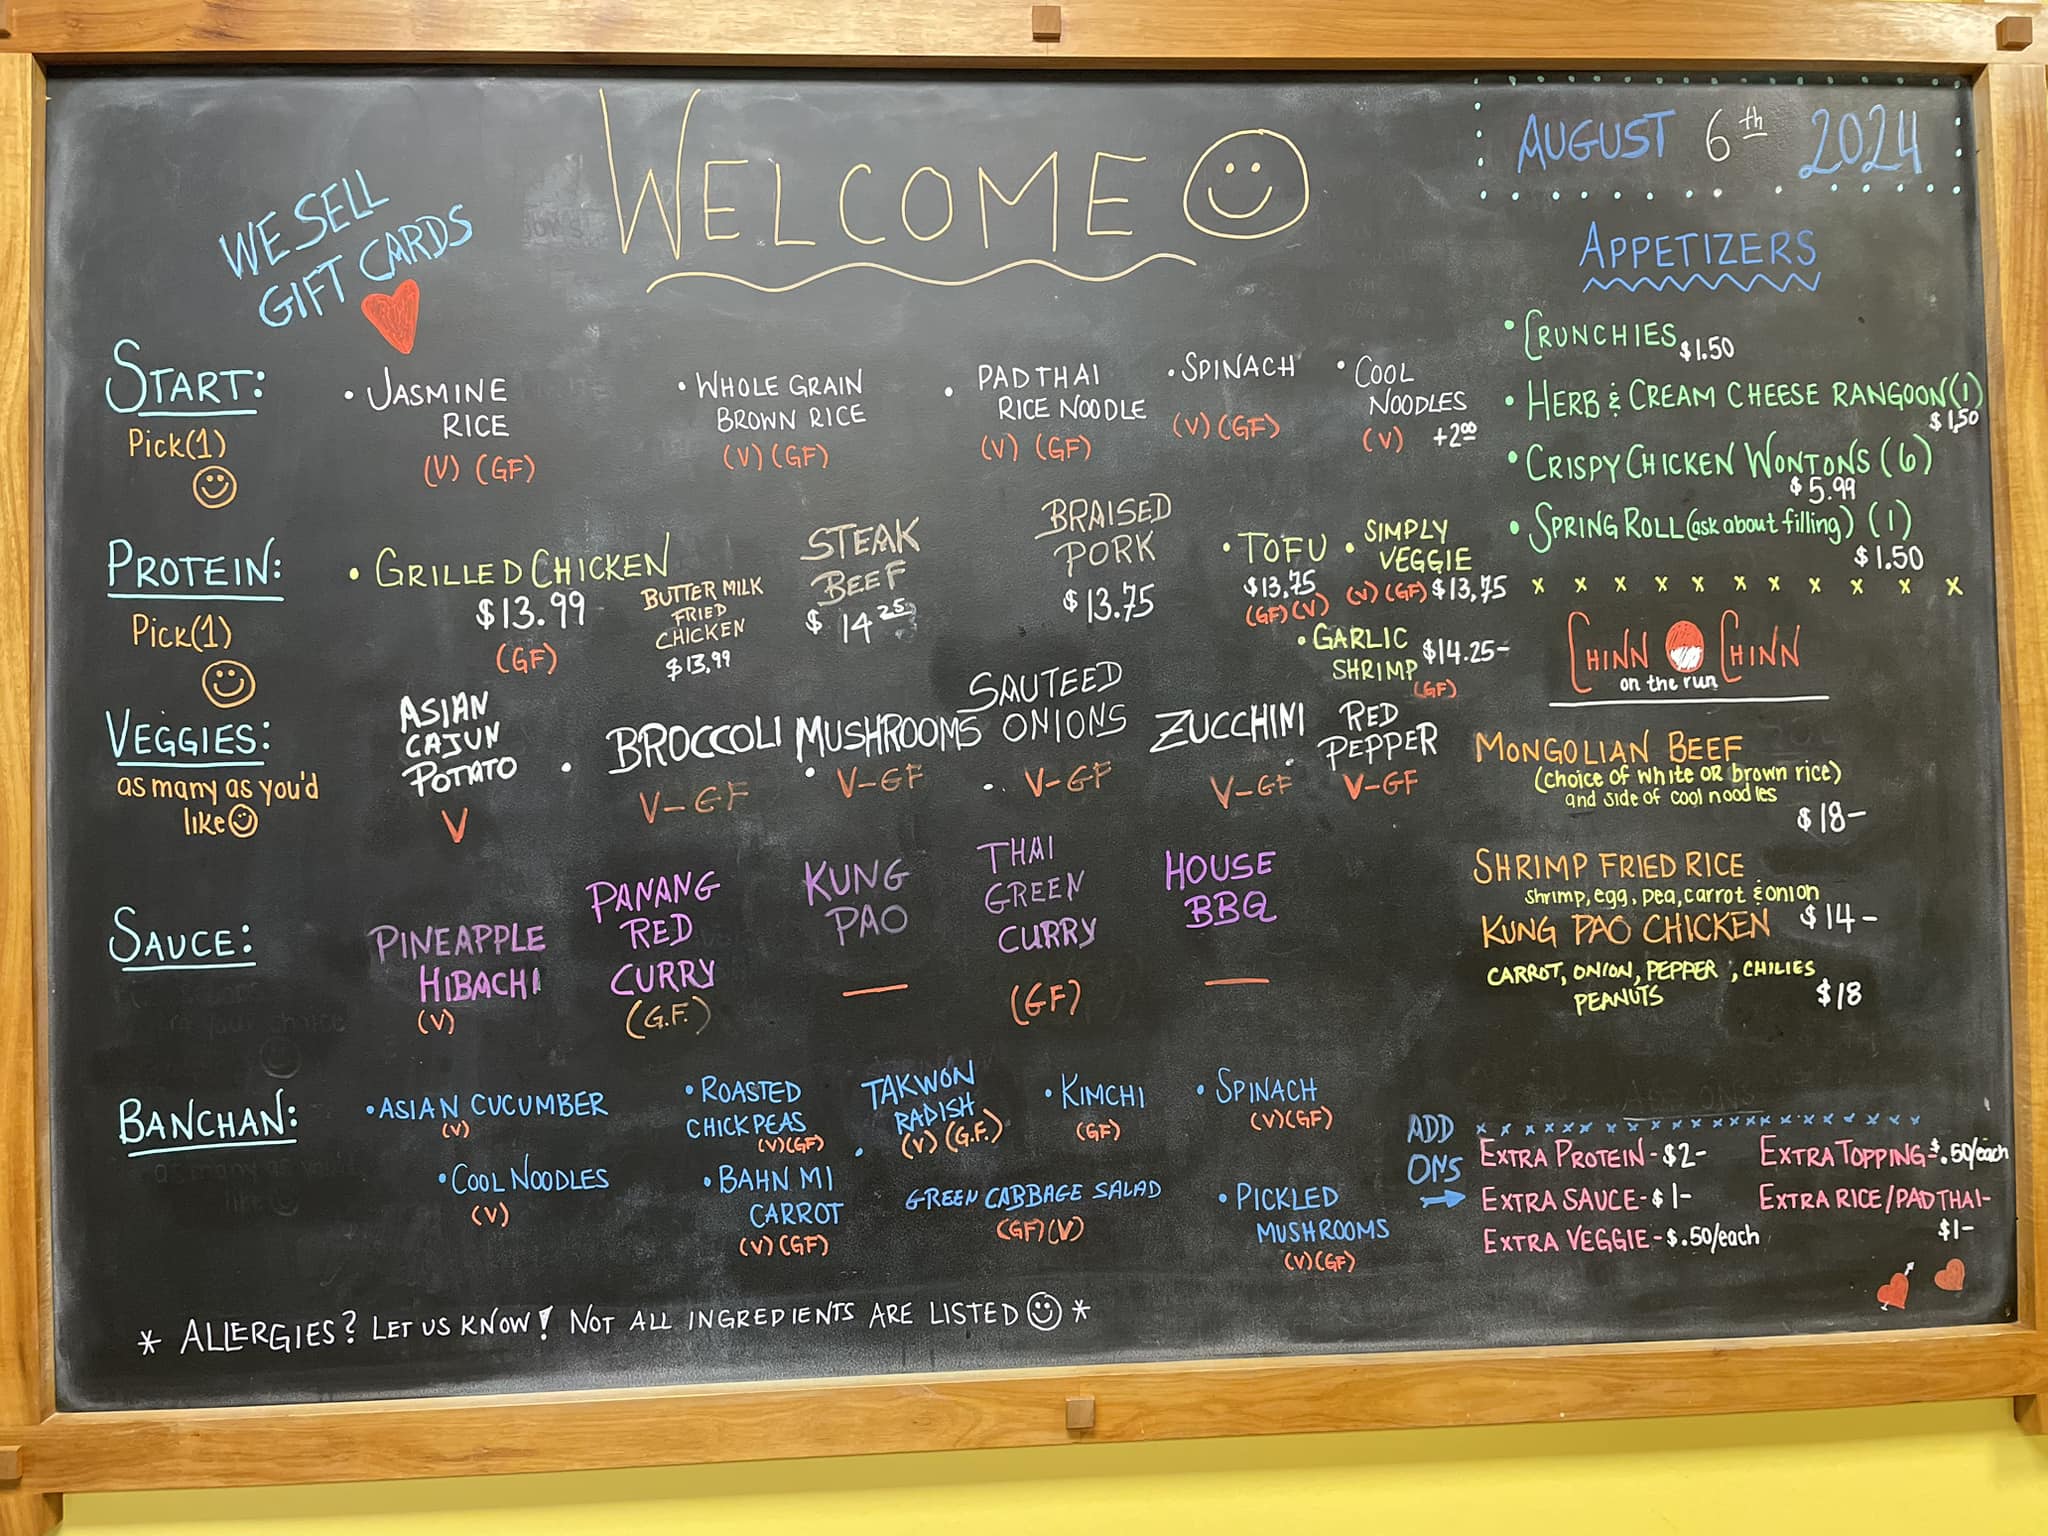 WELCOME
WE SELL
GIFT CARDS
AUGUST 6th 2024
START:
Pick(1)
• JASMINE
RICE
(V) (GF)
• WHOLE GRAIN
BROWN RICE
(V) (GF)
• PAD THAI
RICE NOODLE
(V) (GF)
• SPINACH
(V) (GF)
• COOL
NOODLES
(V) +2.00
PROTEIN:
Pick(1)
• GRILLED CHICKEN
$13.99
(GF)
BUTTER MILK
FRIED
CHICKEN
$13.99
STEAK
BEEF
$14.25
BRAISED
PORK
$13.75
• TOFU
$13.75
(GF) (V)
• SIMPLY
VEGGIE
(V) (GF) $13.75
• GARLIC
SHRIMP $14.25-
(GF)
VEGGIES:
as many as you'd
like
ASIAN
CAJUN
POTATO
V
• BROCCOLI
V-GF
• MUSHROOMS
V-GF
• SAUTEED
ONIONS
V-GF
ZUCCHINI
V-GF
• RED
PEPPER
V-GF
SAUCE:
PINEAPPLE
HIBACHI
(V)
PANANG
RED
CURRY
(G.F.)
KUNG
PAO
—
THAI
GREEN
CURRY
(GF)
HOUSE
BBQ
—
BANCHAN:
• ASIAN CUCUMBER
(V)
• ROASTED
CHICKPEAS
(V)(GF)
• TAKWON
RADISH
(V) (G.F.)
• KIMCHI
(GF)
• SPINACH
(V)(GF)
• COOL NOODLES
(V)
• BAHN MI
CARROT
(V) (GF)
GREEN CABBAGE SALAD
(GF)(V)
• PICKLED
MUSHROOMS
(V)(GF)
* ALLERGIES? LET US KNOW! NOT ALL INGREDIENTS ARE LISTED *
APPETIZERS
• CRUNCHIES $1.50
• HERB & CREAM CHEESE RANGOON (1)
$1.50
• CRISPY CHICKEN WONTONS (6)
$5.99
• SPRING ROLL (ask about filling) (1)
$1.50
x x x x x x x x x x x
CHINN CHINN
on the run
MONGOLIAN BEEF
(choice of white OR brown rice)
and side of cool noodles
$18-
SHRIMP FRIED RICE
shrimp, egg, pea, carrot & onion
$14-
KUNG PAO CHICKEN
CARROT, ONION, PEPPER, CHILIES
PEANUTS $18
ADD
ONS
EXTRA PROTEIN-$2-
EXTRA TOPPING-$.50/each
EXTRA SAUCE-$1-
EXTRA RICE/PAD THAI-
$1-
EXTRA VEGGIE-$.50/each